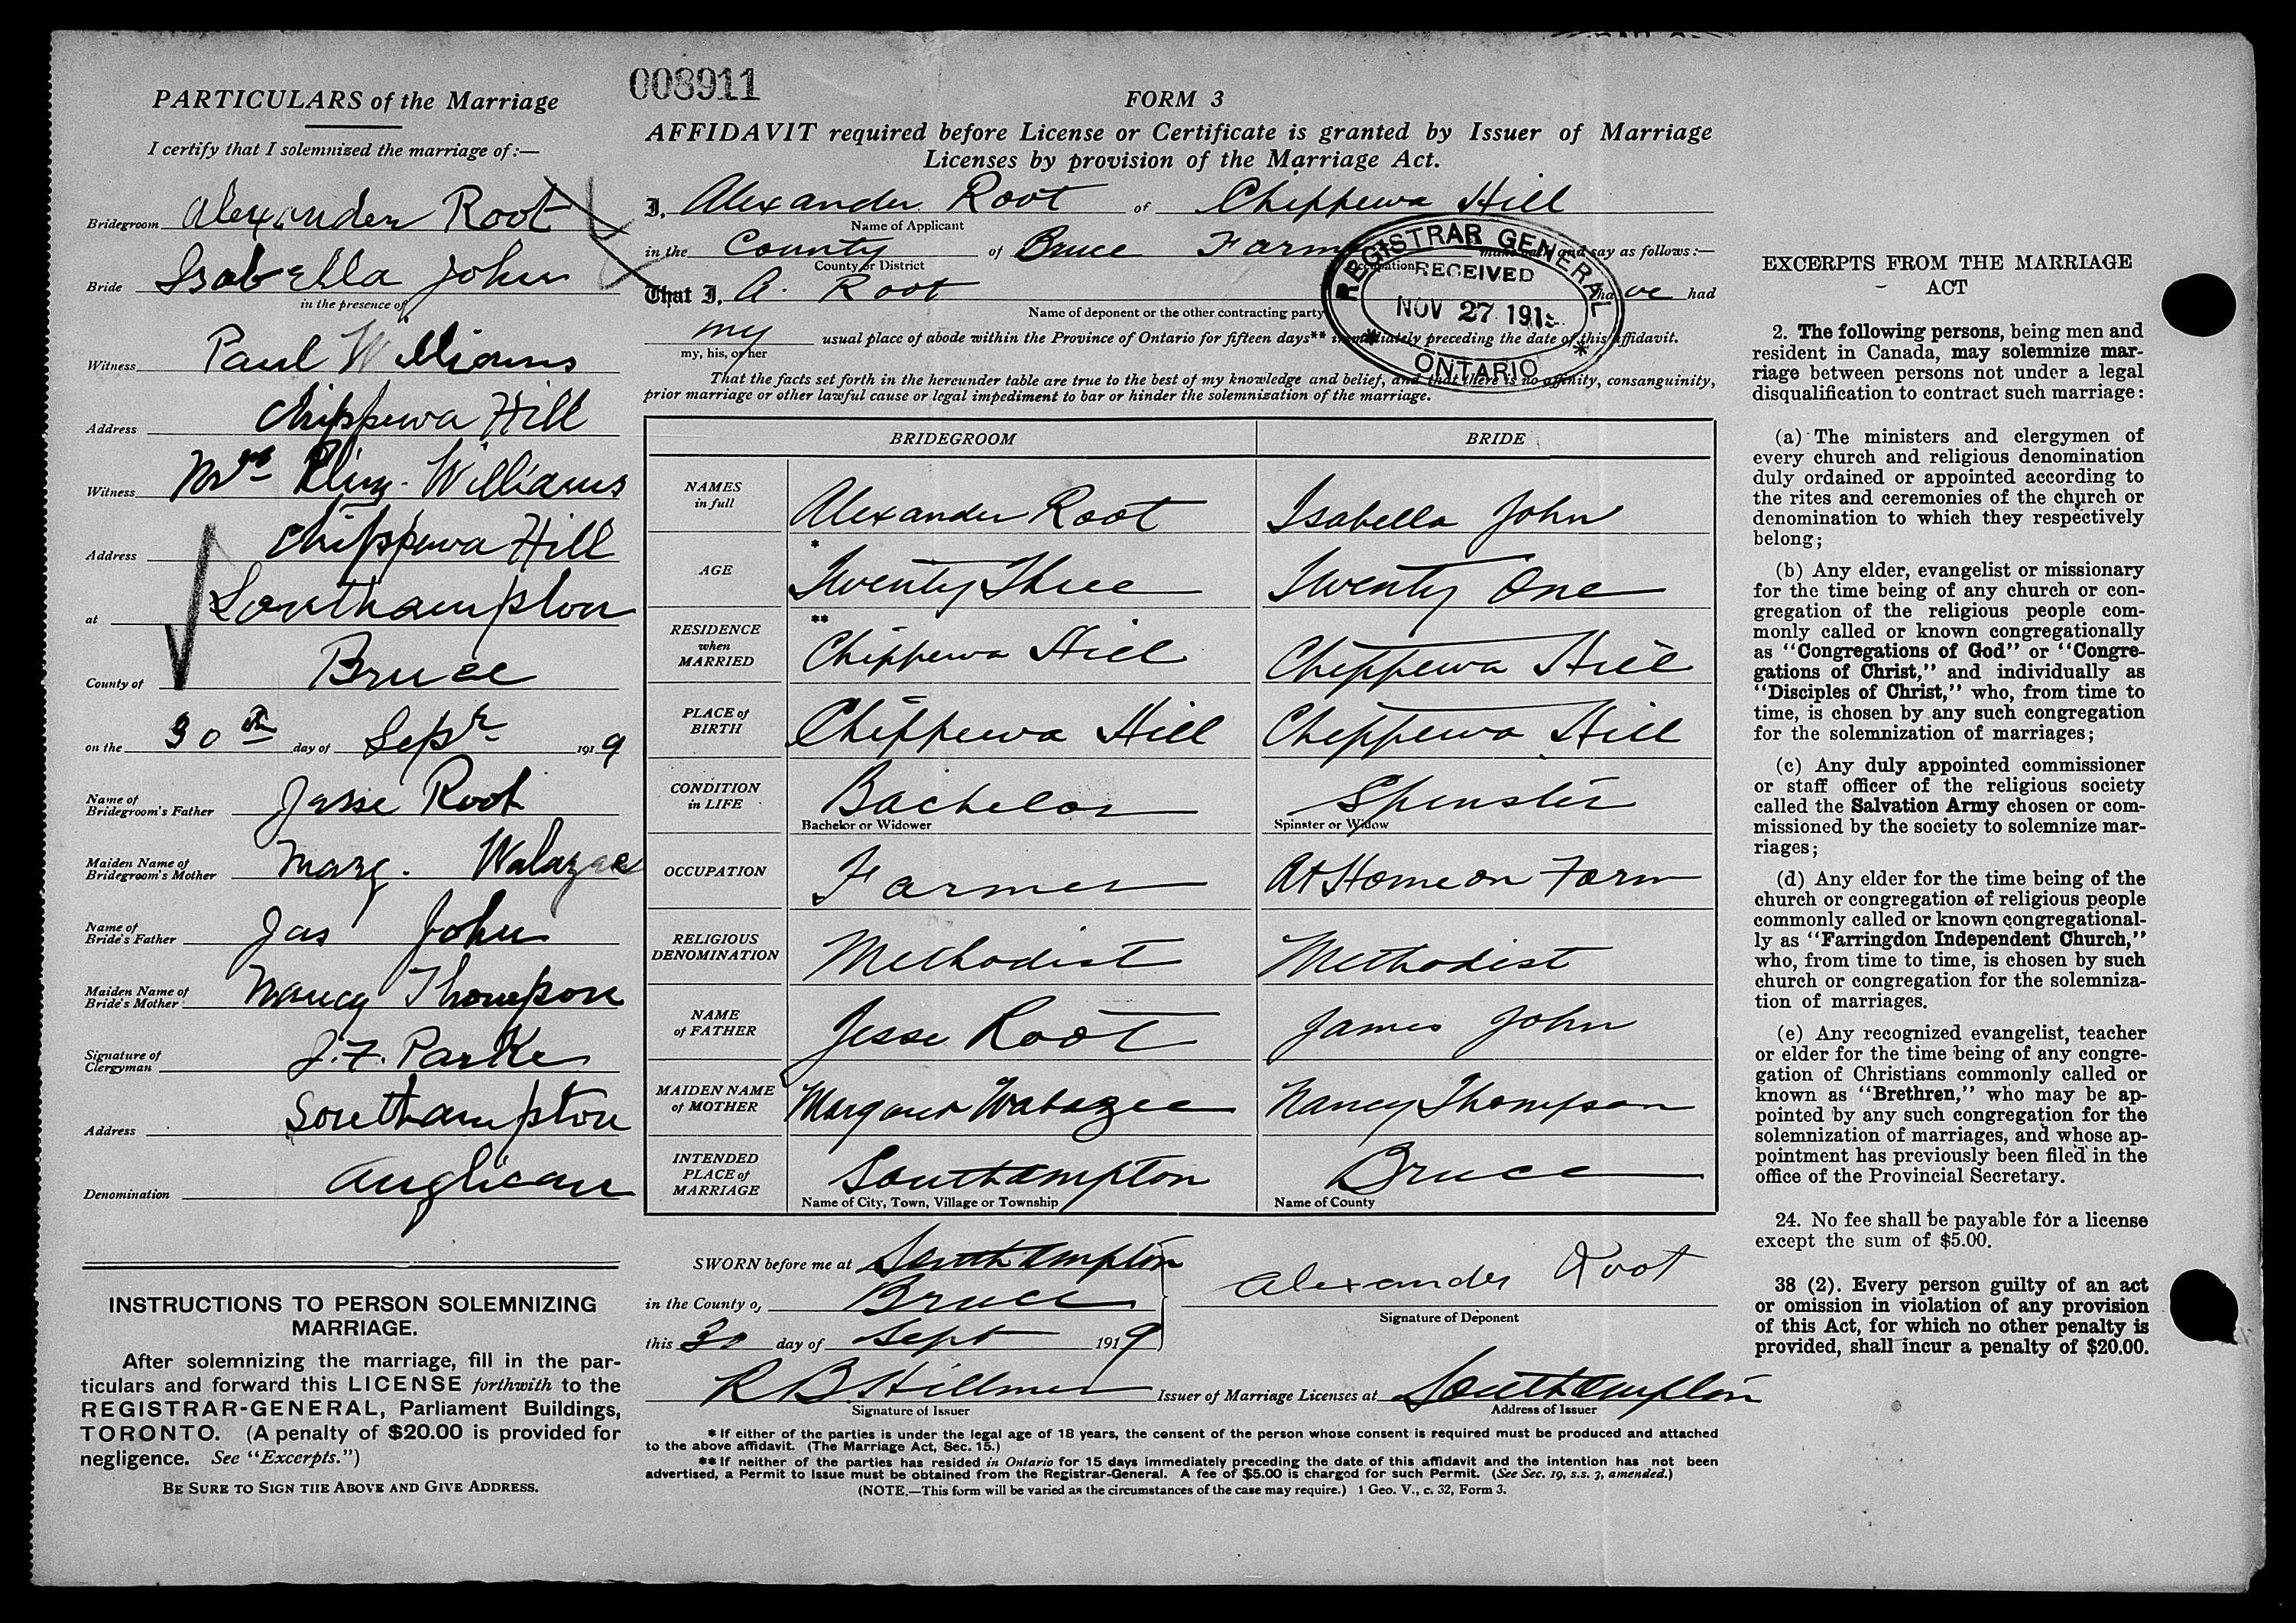 008911
PARTICULARS of the Marriage
I certify that I solemnized the marriage of:—
Bridegroom Alexander Root
Bride Isabella John
in the presence of
Witness Paul Williams
Address Chippewa Hill
Witness Mrs Eliz. Williams
Address Chippewa Hill
at Southampton
County of Bruce
on the 30th day of Sepr 1919
Name of Bridegroom's Father Jesse Root
Maiden Name of Bridegroom's Mother Marg.
Name of Bride's Father Jas John
Maiden Name of Bride's Mother Nancy Thompson
Signature of Clergyman J.F. Parke
Address Southampton
Denomination Anglican
INSTRUCTIONS TO PERSON SOLEMNIZING
MARRIAGE.
After solemnizing the marriage, fill in the par-
ticulars and forward this LICENSE forthwith to the
REGISTRAR-GENERAL, Parliament Buildings,
TORONTO. (A penalty of $20.00 is provided for
negligence. See "Excerpts.")
BE SURE TO SIGN THE ABOVE AND GIVE ADDRESS.
FORM 3
AFFIDAVIT required before License or Certificate is granted by Issuer of Marriage
Licenses by provision of the Marriage Act.
I, Alexander Root of Chippewa Hill
Name of Applicant
in the County of Bruce Farmer make oath and say as follows:—
County or District Occupation
That I, A. Root have had
Name of deponent or the other contracting party
my usual place of abode within the Province of Ontario for fifteen days** immediately preceding the date of this affidavit.
my, his, or her
REGISTRAR GENERAL
RECEIVED
NOV 27 191
* ONTARIO *
That the facts set forth in the hereunder table are true to the best of my knowledge and belief, and that there is no affinity, consanguinity,
prior marriage or other lawful cause or legal impediment to bar or hinder the solemnization of the marriage.
BRIDEGROOM BRIDE
NAMES in full Alexander Root Isabella John
AGE * Twenty Three Twenty One
RESIDENCE when MARRIED ** Chippewa Hill Chippewa Hill
PLACE of BIRTH Chippewa Hill Chippewa Hill
CONDITION in LIFE Bachelor Spinster
Bachelor or Widower Spinster or Widow
OCCUPATION Farmer At Home on Farm
RELIGIOUS DENOMINATION Methodist Methodist
NAME of FATHER Jesse Root James John
MAIDEN NAME of MOTHER Margaret Wabazee Nancy Thompson
INTENDED PLACE of MARRIAGE Southampton Bruce
Name of City, Town, Village or Township Name of County
SWORN before me at Southampton
in the County of Bruce
this 30 day of Sept 1919
Alexander Root
Signature of Deponent
R B Hillmer Issuer of Marriage Licenses at Southampton
Signature of Issuer Address of Issuer
* If either of the parties is under the legal age of 18 years, the consent of the person whose consent is required must be produced and attached
to the above affidavit. (The Marriage Act, Sec. 15.)
** If neither of the parties has resided in Ontario for 15 days immediately preceding the date of this affidavit and the intention has not been
advertised, a Permit to Issue must be obtained from the Registrar-General. A fee of $5.00 is charged for such Permit. (See Sec. 19, s.s. 3, amended.)
(NOTE.—This form will be varied as the circumstances of the case may require.) 1 Geo. V., c. 32, Form 3.
EXCERPTS FROM THE MARRIAGE
ACT
2. The following persons, being men and
resident in Canada, may solemnize mar-
riage between persons not under a legal
disqualification to contract such marriage:
(a) The ministers and clergymen of
every church and religious denomination
duly ordained or appointed according to
the rites and ceremonies of the church or
denomination to which they respectively
belong;
(b) Any elder, evangelist or missionary
for the time being of any church or con-
gregation of the religious people com-
monly called or known congregationally
as "Congregations of God" or "Congre-
gations of Christ," and individually as
"Disciples of Christ," who, from time to
time, is chosen by any such congregation
for the solemnization of marriages;
(c) Any duly appointed commissioner
or staff officer of the religious society
called the Salvation Army chosen or com-
missioned by the society to solemnize mar-
riages;
(d) Any elder for the time being of the
church or congregation of religious people
commonly called or known congregational-
ly as "Farringdon Independent Church,"
who, from time to time, is chosen by such
church or congregation for the solemniza-
tion of marriages.
(e) Any recognized evangelist, teacher
or elder for the time being of any congre-
gation of Christians commonly called or
known as "Brethren," who may be ap-
pointed by any such congregation for the
solemnization of marriages, and whose ap-
pointment has previously been filed in the
office of the Provincial Secretary.
24. No fee shall be payable for a license
except the sum of $5.00.
38 (2). Every person guilty of an act
or omission in violation of any provision
of this Act, for which no other penalty is
provided, shall incur a penalty of $20.00.